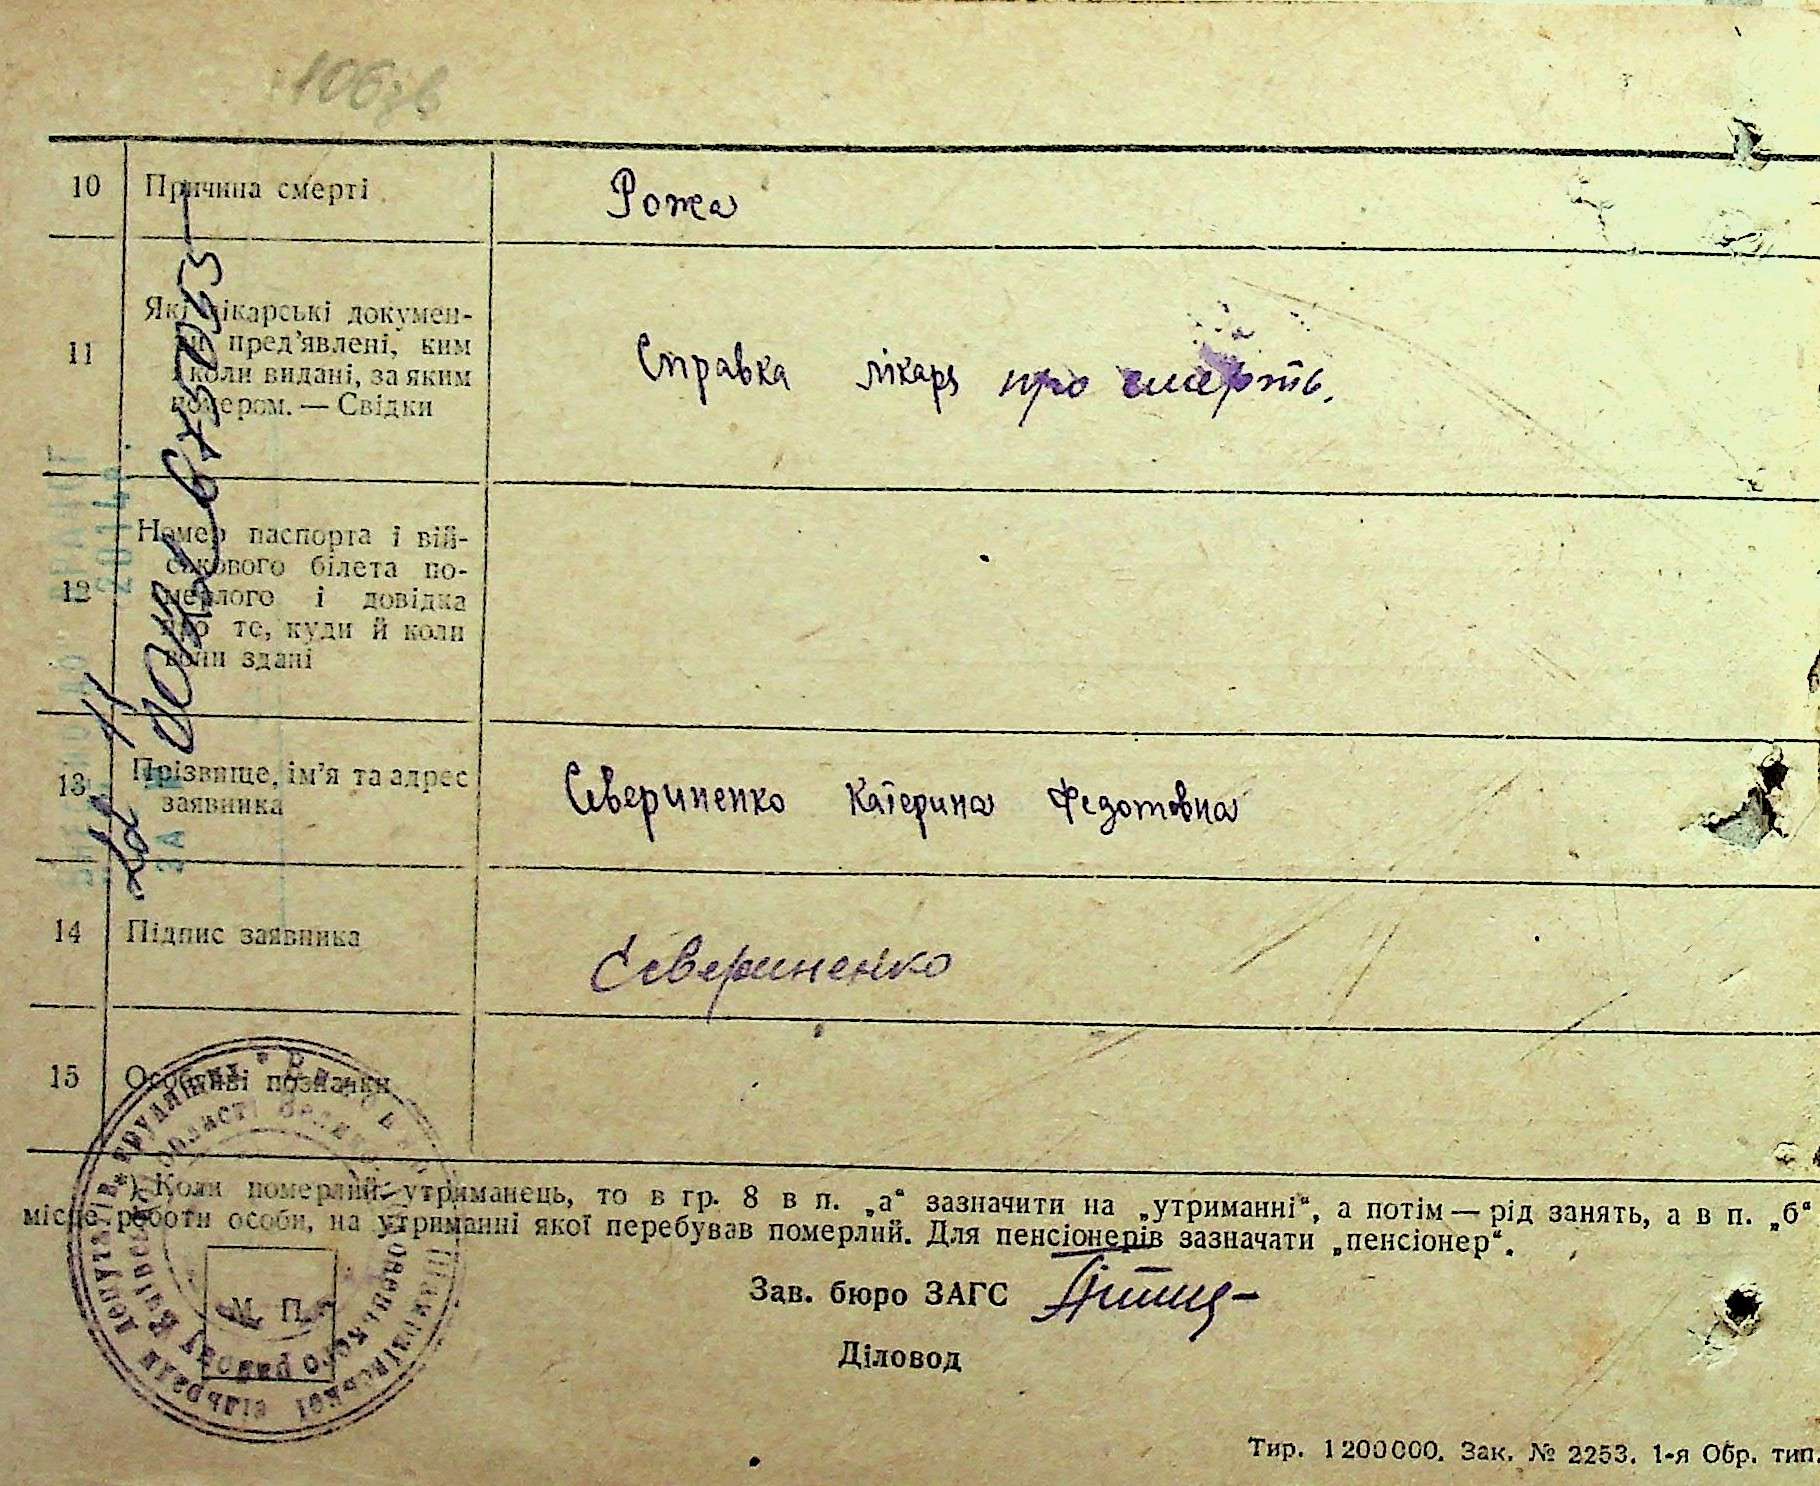 106зв
10 Причина смерті Рожа
11 Які лікарські докумен-
ти пред’явлені, ким
і коли видані, за яким
номером. — Свідки
Справка лікаря про смерть.
12 Номер паспорта і вій-
ськового білета по-
мерлого і довідка
про те, куди й коли
вони здані
13 Прізвище, ім’я та адрес
заявника
Севериненко Катерина Федотовна
14 Підпис заявника
Севериненко
15 Особливі позначки
*) Коли померлий утриманець, то в гр. 8 в п. „а“ зазначити на „утриманні“, а потім — рід занять, а в п. „б“
місце роботи особи, на утриманні якої перебував померлий. Для пенсіонерів зазначати „пенсіонер“.
Зав. бюро ЗАГС
М. П.
Діловод
Тир. 1200000. Зак. № 2253. 1-я Обр. тип.